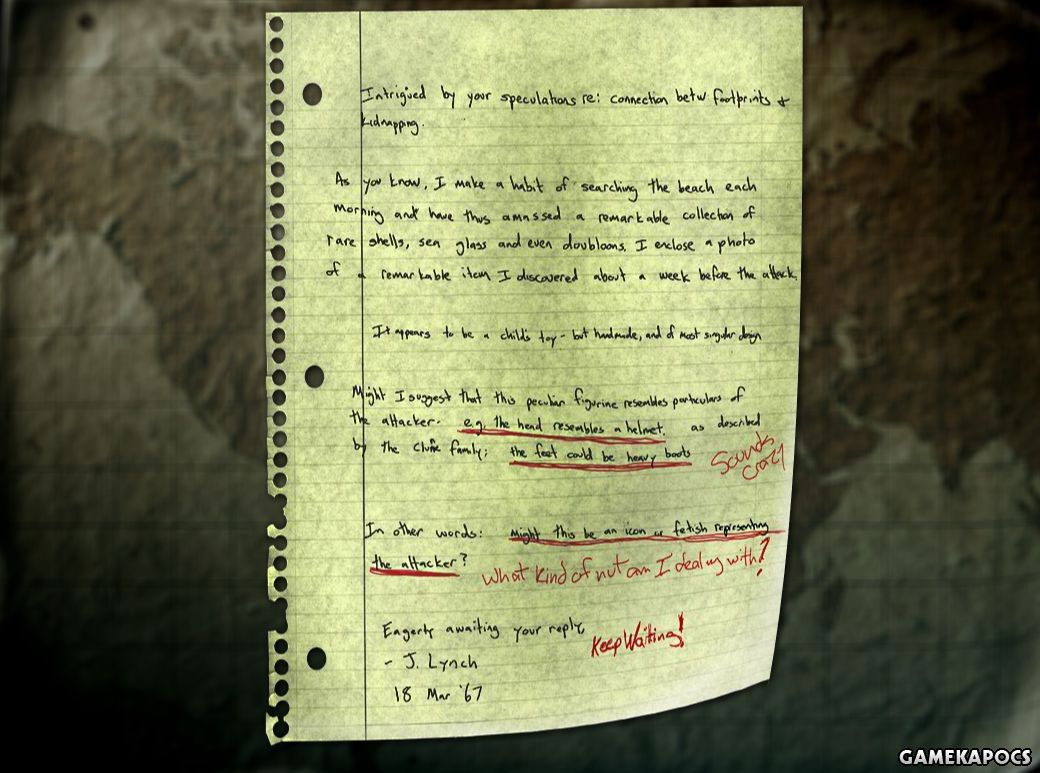 Intrigued by your speculations re: connection betw footprints &
kidnapping.
As you know, I make a habit of searching the beach each
morning and have thus amassed a remarkable collection of
rare shells, sea glass and even doubloons. I enclose a photo
of a remarkable item I discovered about a week before the attack.
It appears to be a child's toy - but handmade, and of most singular design
Might I suggest that this peculiar figurine resembles particulars of
the attacker. e.g. the head resembles a helmet, as described
by the family; the feet could be heavy boots
Sounds
crazy
In other words: Might this be an icon or fetish representing
the attacker?
What kind of nut am I dealing with?
Eagerly awaiting your reply,
Keep Waiting!
- J. Lynch
18 Mar '67
GAMEKAPOCS